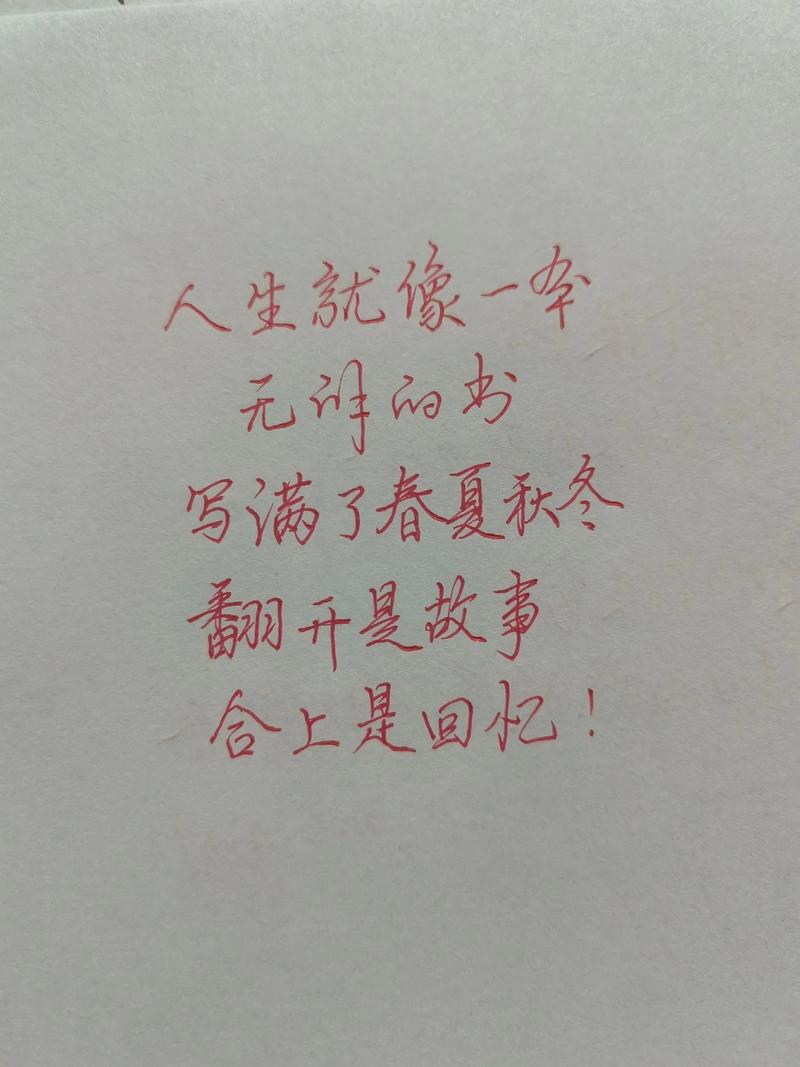 人生就像一本
无详的书
写满了春夏秋冬
翻开是故事
合上是回忆！